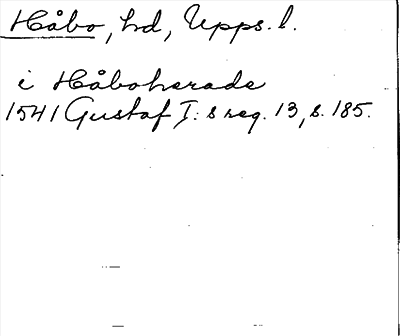 Håbo, hd, Upps. l.
i Håboherade
1541 Gustaf I:s reg. 13, s. 185.